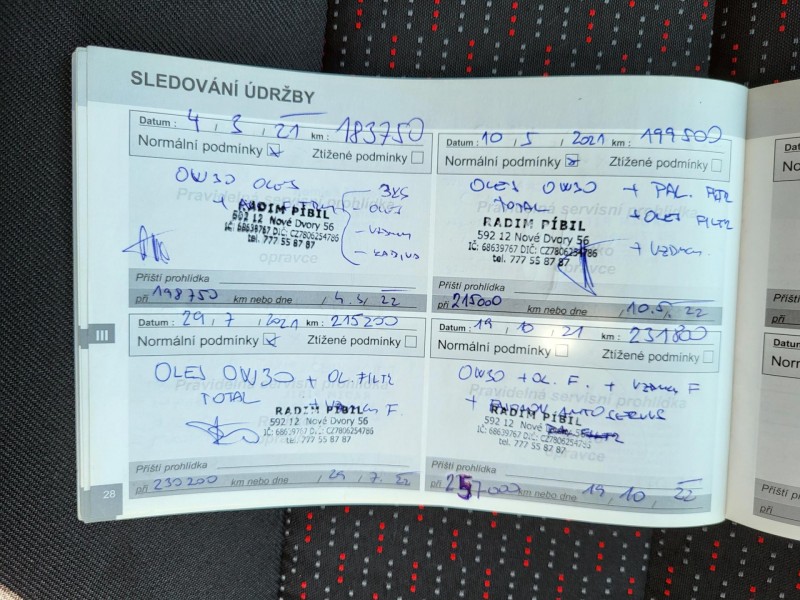 SLEDOVÁNÍ ÚDRŽBY
Datum : 4 / 3 / 21 km : 183750
Normální podmínky Ztížené podmínky
OW30 OLEJ
OLEJ
RADIM PÍBIL
592 12 Nové Dvory 56
IČ: 68639767 DIČ: CZ7806254786
tel. 777 55 87 87
opravce
Příští prohlídka
při 198750 km nebo dne / 4. 3. / 22
Datum : 10 / 5 / 2021 km : 199500
Normální podmínky Ztížené podmínky
OLEJ OW30 + PAL. FILTR
TOTAL + OLEJ FILTR
RADIM PÍBIL
592 12 Nové Dvory 56
IČ: 68639767 DIČ: CZ7806254786
tel. 777 55 87 87
opravce
Příští prohlídka
při 215000 km nebo dne / 10. 5. 22
Datum : 29 / 7 / 2021 km : 215200
Normální podmínky Ztížené podmínky
OLEJ OW30 + OL. FILTR
TOTAL
RADIM PÍBIL
592 12 Nové Dvory 56
IČ: 68639767 DIČ: CZ7806254786
tel. 777 55 87 87
Příští prohlídka
při 230200 km nebo dne / 29 / 7. 22
Datum : 19 / 10 / 21 km : 231800
Normální podmínky Ztížené podmínky
OW30 + OL. F. + F
Pravidelná servisní prohlídka
RADIM PÍBIL
592 12 Nové Dvory 56
IČ: 68639767 DIČ: CZ7806254786
tel. 777 55 87 87
opravce
Příští prohlídka
při 257000 km nebo dne 19 / 10 / 22
III
28
Příští
při
Datum
Norm
Příští p
při